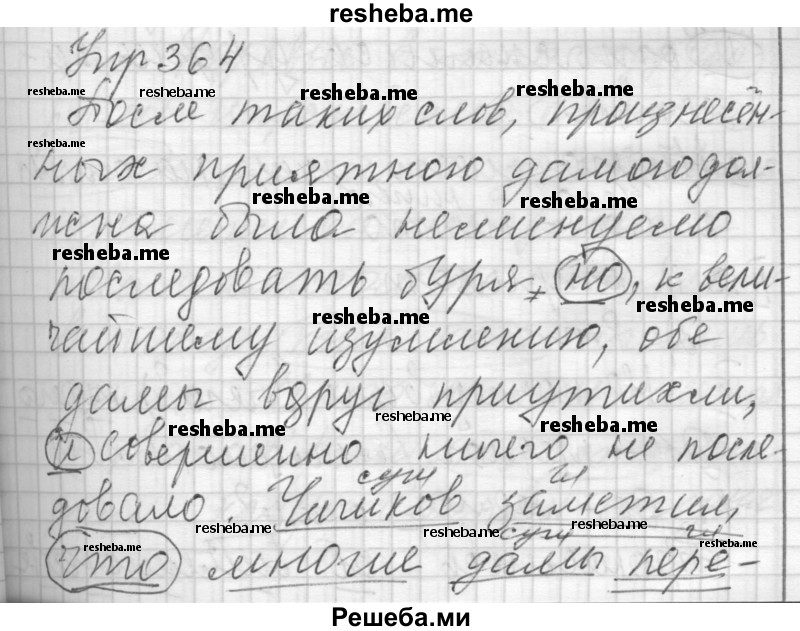 resheba.me
Упр 364
resheba.me resheba.me resheba.me resheba.me
После таких слов, произнесён-
resheba.me
ных приятною дамою дол-
resheba.me resheba.me
жна была неминуемо
resheba.me
последовать буря, но, к вели-
resheba.me resheba.me
чайшему изумлению, обе
дамы вдруг приутихли,
resheba.me resheba.me resheba.me
и совершенно ничего не после-
сущ гл
довало. Чичиков заметил,
resheba.me resheba.me resheba.me
сущ гл
что многие дамы пере-
resheba.me resheba.me
Решеба.ми